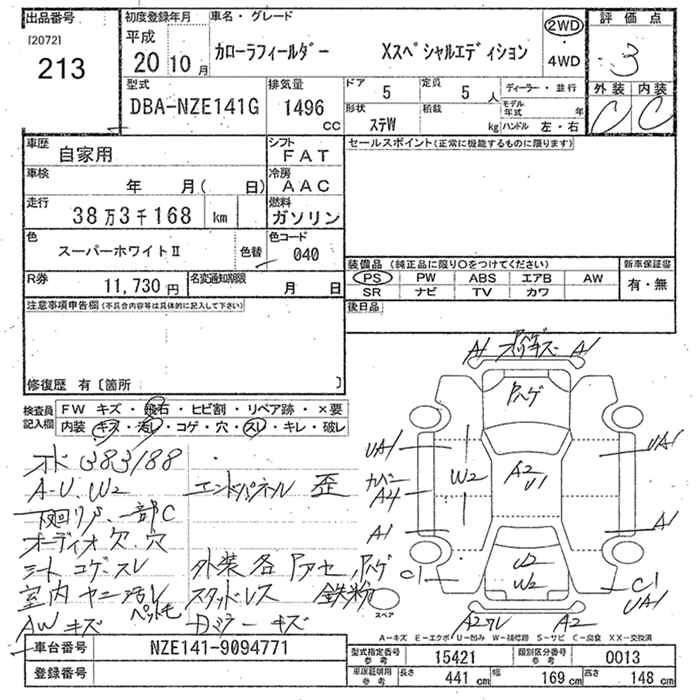 出品番号 初度登録年月 車名・グレード 評価点
[2072] 213 平成 20 10月 カローラフィールダー Xスペシャルエディション 2WD 4WD 3
外装 内装
C C
型式 DBA-NZE141G
排気量 1496 cc
ドア 5 定員 5人 ディーラー・並行
形状 ステW 積載 kg モデル年式 年
ハンドル 左・右
車歴 自家用
シフト FAT
セールスポイント(正常に機能するものに限ります)
車検 年 月( 日)
冷房 AAC
走行 38万3千168 km
燃料 ガソリン
色 スーパーホワイトⅡ 色替
色コード 040
装備品(純正品に限り○をつけてください) 新車保証書
PS PW ABS エアB AW 有・無
SR ナビ TV カワ
R券 11,730円
名変通知期限 月 日
後日品
注意事項申告欄(不具合内容等は具体的に記入して下さい)
修復歴 有〔箇所 〕
検査員記入欄
FW キズ・飛石・ヒビ割・リペア跡・×要
内装・キズ・汚レ・コゲ・穴・スレ・キレ・破レ
オド 383188
A-U. W2 エンドパネル 歪
下回りS、一部C
オーディオ欠. 穴
シート コゲ・スレ 外装各アセ,ハゲ
室内 ヤニ汚レ スタッドレス 鉄粉
ペットモ
AWキズ Dミラーキズ
A1 A1
ハゲ
UA1 UA1
W2 A2 U1
カバー A4
A1 A1
U2
W2
C1 C1
UA1
スペア
A2ワレ A2
A-キズ E-エクボ U-凹み W-補修跡 S-サビ C-腐食 XX-交換済
車台番号 NZE141-9094771
登録番号
型式指定番号 参考 15421 類別区分番号 参考 0013
車庫証明用 参考 長さ 441cm 幅 169cm 高さ 148cm